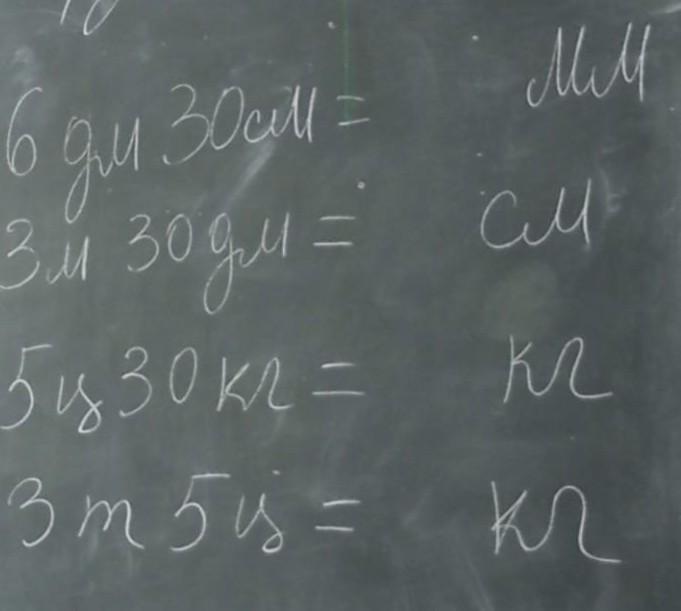 6 дм 30 см = мм
3 м 30 дм = см
5 ц 30 кг = кг
3 т 5 ц = кг